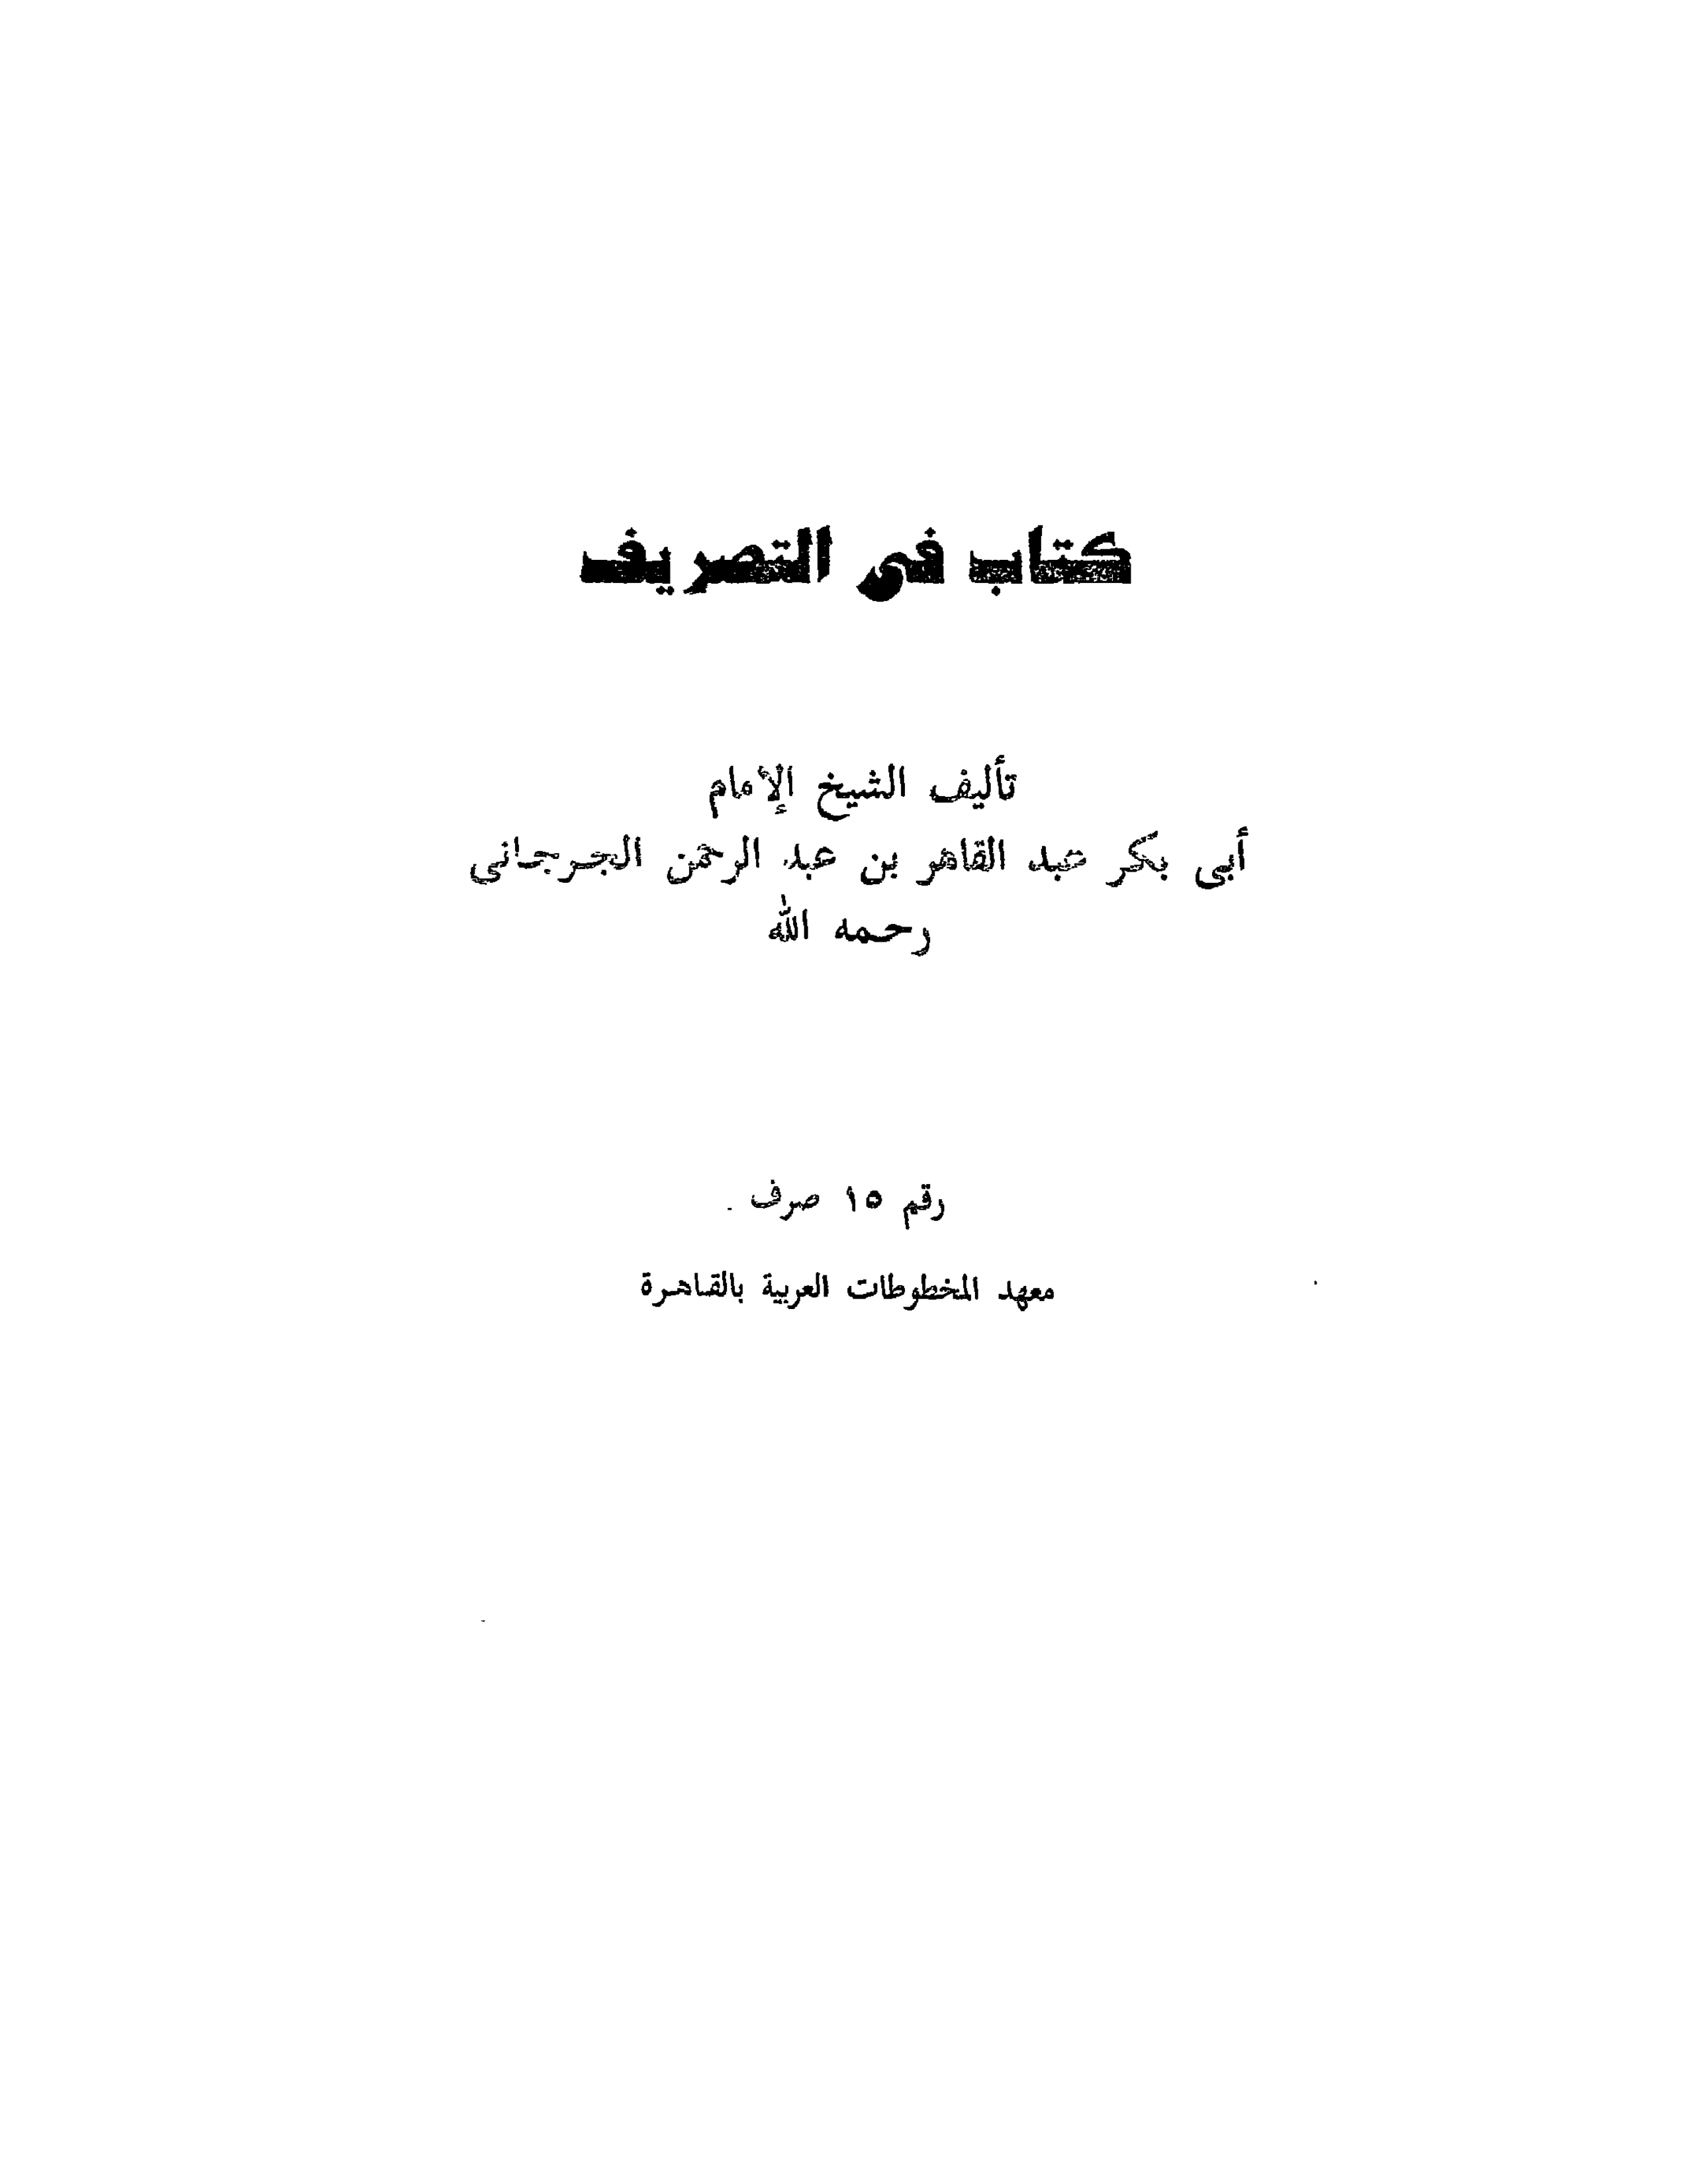 كتاب فى التصريف
تأليف الشيخ الإمام
أبى بكر عبد القاهر بن عبد الرحمن الجرجانى
رحمه الله
رقم ١٥ صرف .
معهد المخطوطات العربية بالقاهرة